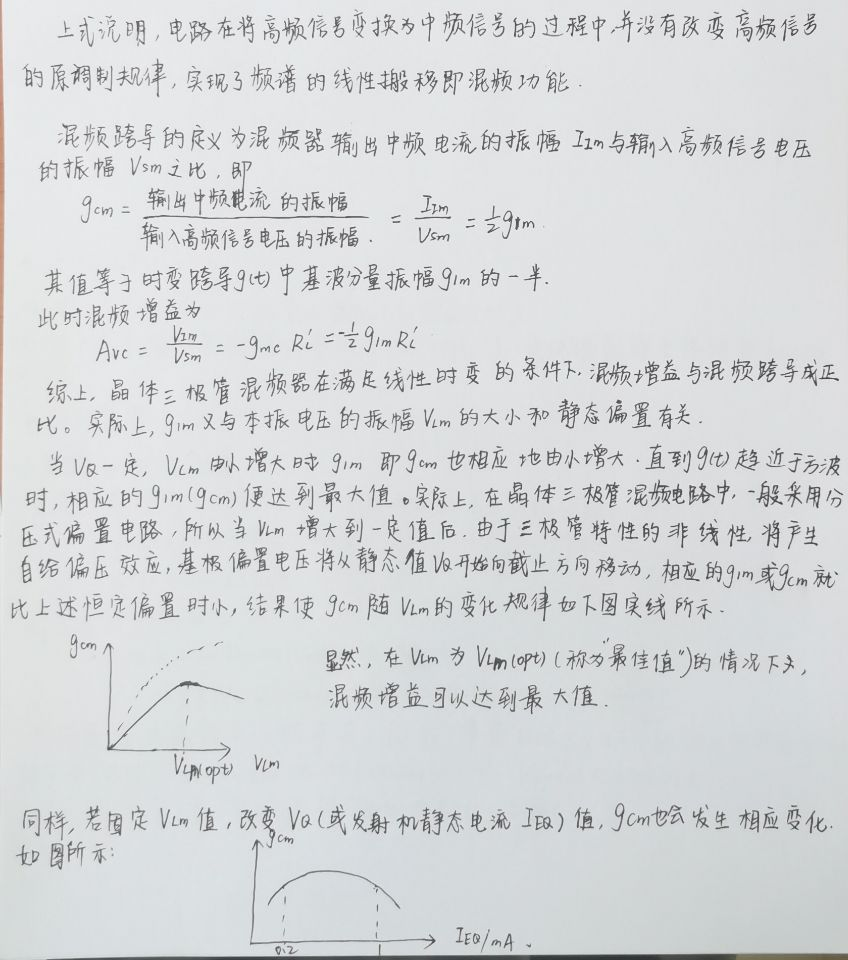 上式说明,电路在将高频信号变换为中频信号的过程中,并没有改变高频信号
的原调制规律,实现了频谱的线性搬移即混频功能.
混频跨导的定义为混频器输出中频电流的振幅 IIm与输入高频信号电压
的振幅 Vsm之比,即
gcm = 输出中频电流的振幅 / 输入高频信号电压的振幅. = IIm / Vsm = 1/2 g1m.
其值等于时变跨导g(t)中基波分量振幅g1m的一半.
此时混频增益为
Avc = VIm / Vsm = -gmc Ri' = -1/2 g1m Ri'
综上,晶体三极管混频器在满足线性时变的条件下,混频增益与混频跨导成正
比。实际上,g1m又与本振电压的振幅VLm的大小和静态偏置有关.
当VQ一定,VLm由小增大时g1m即gcm也相应地由小增大.直到g(t)趋近于方波
时,相应的g1m(gcm)便达到最大值。实际上,在晶体三极管混频电路中,一般采用分
压式偏置电路,所以当VLm增大到一定值后.由于三极管特性的非线性,将产生
自给偏压效应,基极偏置电压将从静态值VQ开始向截止方向移动,相应的g1m或gcm就
比上述恒定偏置时小,结果使gcm随VLm的变化规律如下图实线所示.
gcm
VLm(opt) VLm
显然,在VLm为VLm(opt)(称为"最佳值")的情况下,
混频增益可以达到最大值.
同样,若固定VLm值,改变VQ(或发射机静态电流IEQ)值,gcm也会发生相应变化.
如图所示:
gcm
0.2 1 IEQ/mA.